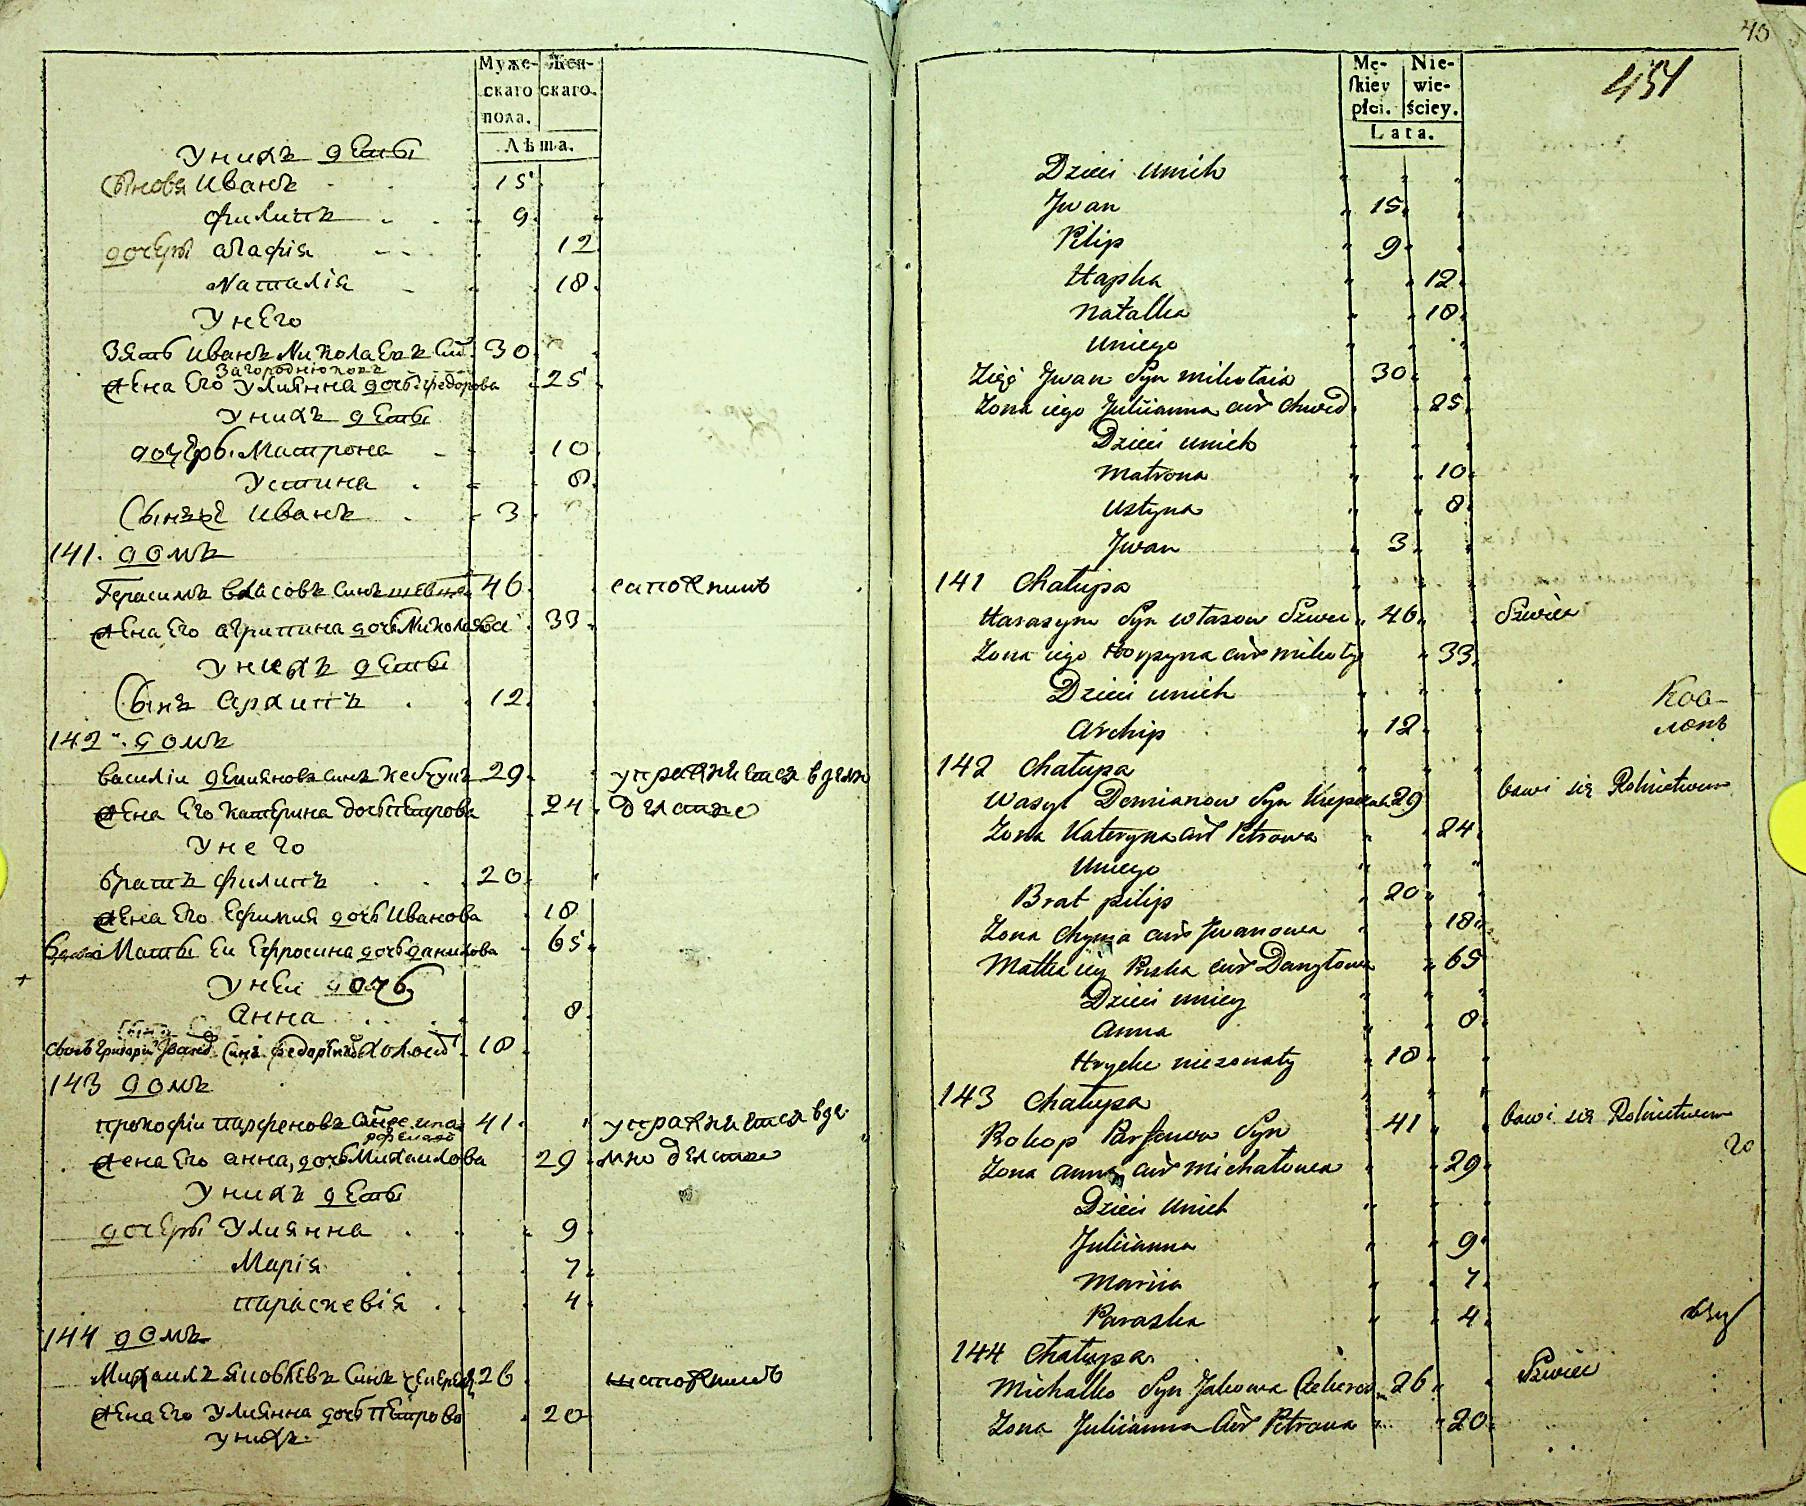 Муже-
скаго
пола.
Жен-
скаго.
Лѣта.
Унихъ дети
Сыновя Иванъ 15
Филипъ 9
дочери агафія 12
Наталія 18
Унего
Зять Иванъ Николаевъ Сын 30
Загороднюковъ
Жена Его Улиянна дочь федорова 25
Унихъ дети
дочерь Матрона 10
Устина 8
Сынъ Иванъ 3
141. домъ
Герасимъ власовъ Синъ 46 сапожникъ
Жена Его агрипина дочь Николаева 33
Унихъ дети
Сынъ архипъ 12
142. домъ
василіи демияновъ синъ 29 упражняется вземле
Жена Его катерина дочь петрова 24 делие
Унего
братъ филипъ 20
Жена Его Ефимия дочь Иванова 18
вдова Мать Еи Ефросина дочь данилова 65
Унеи дочь
Анна 8
Григории 18
143 домъ
прокофіи парфеновъ 41 упражняется взе
Жена Его анна, дочь Михаилова 29 мно делие
Унихъ дети
дочери Улиянна 9
Марія 7
параскевія 4
144 домъ
Михаилъ яковлевъ Синъ 26 сапожникъ
Жена Его Улиянна дочь петрова 20
Унихъ
43
451
Mę-
skiey
płci.
Nie-
wie-
ściey.
Lata.
Dzieci unich
Jwan 15
Pilip 9
Hapka 12
Natalka 18
Uniego
Zięć Jwan Syn mikołaia 30
Żona iego Juliianna cur chwed 25
Dzieci unich
Matrona 10
Ustyna 8
Jwan 3
141 Chałupa
Harasym Syn własow Szwec 46 Szwiec
Żona iego Horpyna cur mikoły 33
Dzieci unich
Archip 12
142 Chałupa
Wasyl Demianow Syn 29 bawi się Rolnictwem
Żona Kateryna cur Petrowa 24
Uniego
Brat pilip 20
Żona chyma cur Jwanowa 18
Matka iey Pryska cur Danyłowa 65
Dzieci uniey
Anna 8
Hryćko nieżonaty 18
143 Chałupa
Prokop Parfenow Syn 41 bawi się Rolnictwem
Żona anna cur michałowa 29
Dzieci unich
Juliianna 9
Mariia 7
Paraska 4
144 Chałupa
Michałko Syn Jakowa 26 Szwiec
Żona Juliianna Cur Petrowa 20